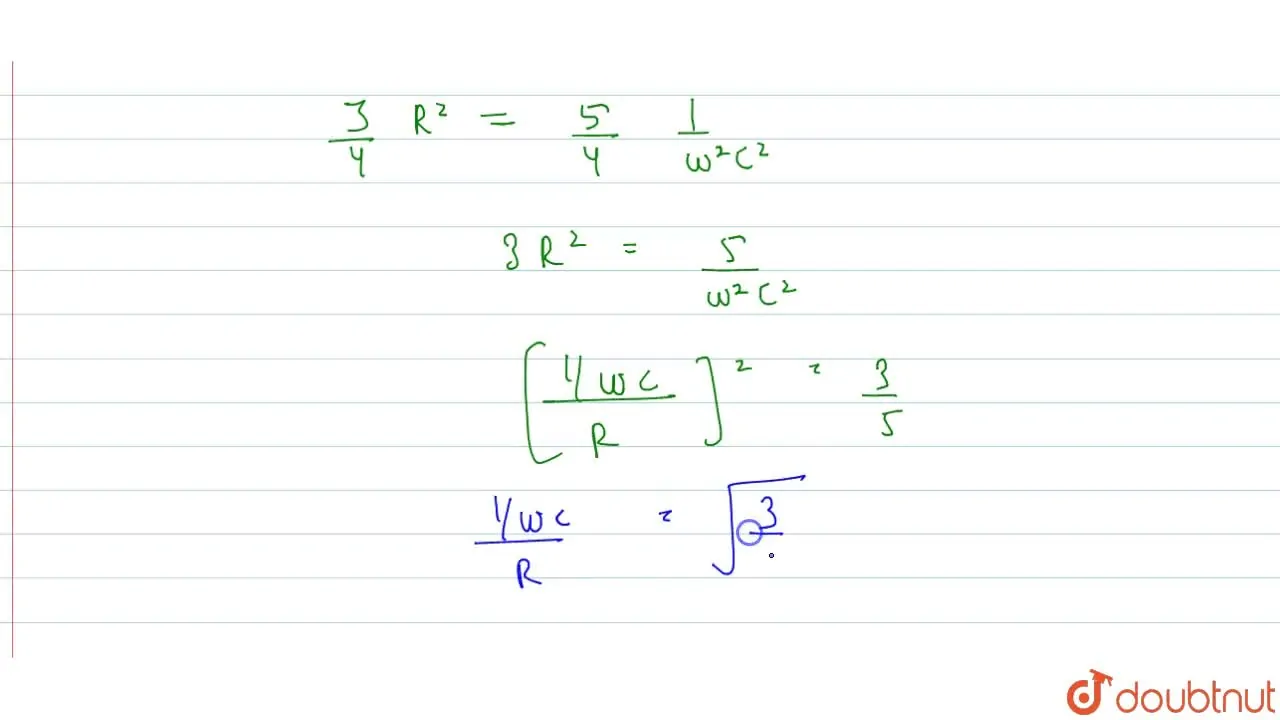 3/4 R² = 5/4 1/ω²C²
3R² = 5/ω²C²
[(1/ωC)/R]² = 3/5
(1/ωC)/R = √(3/
doubtnut